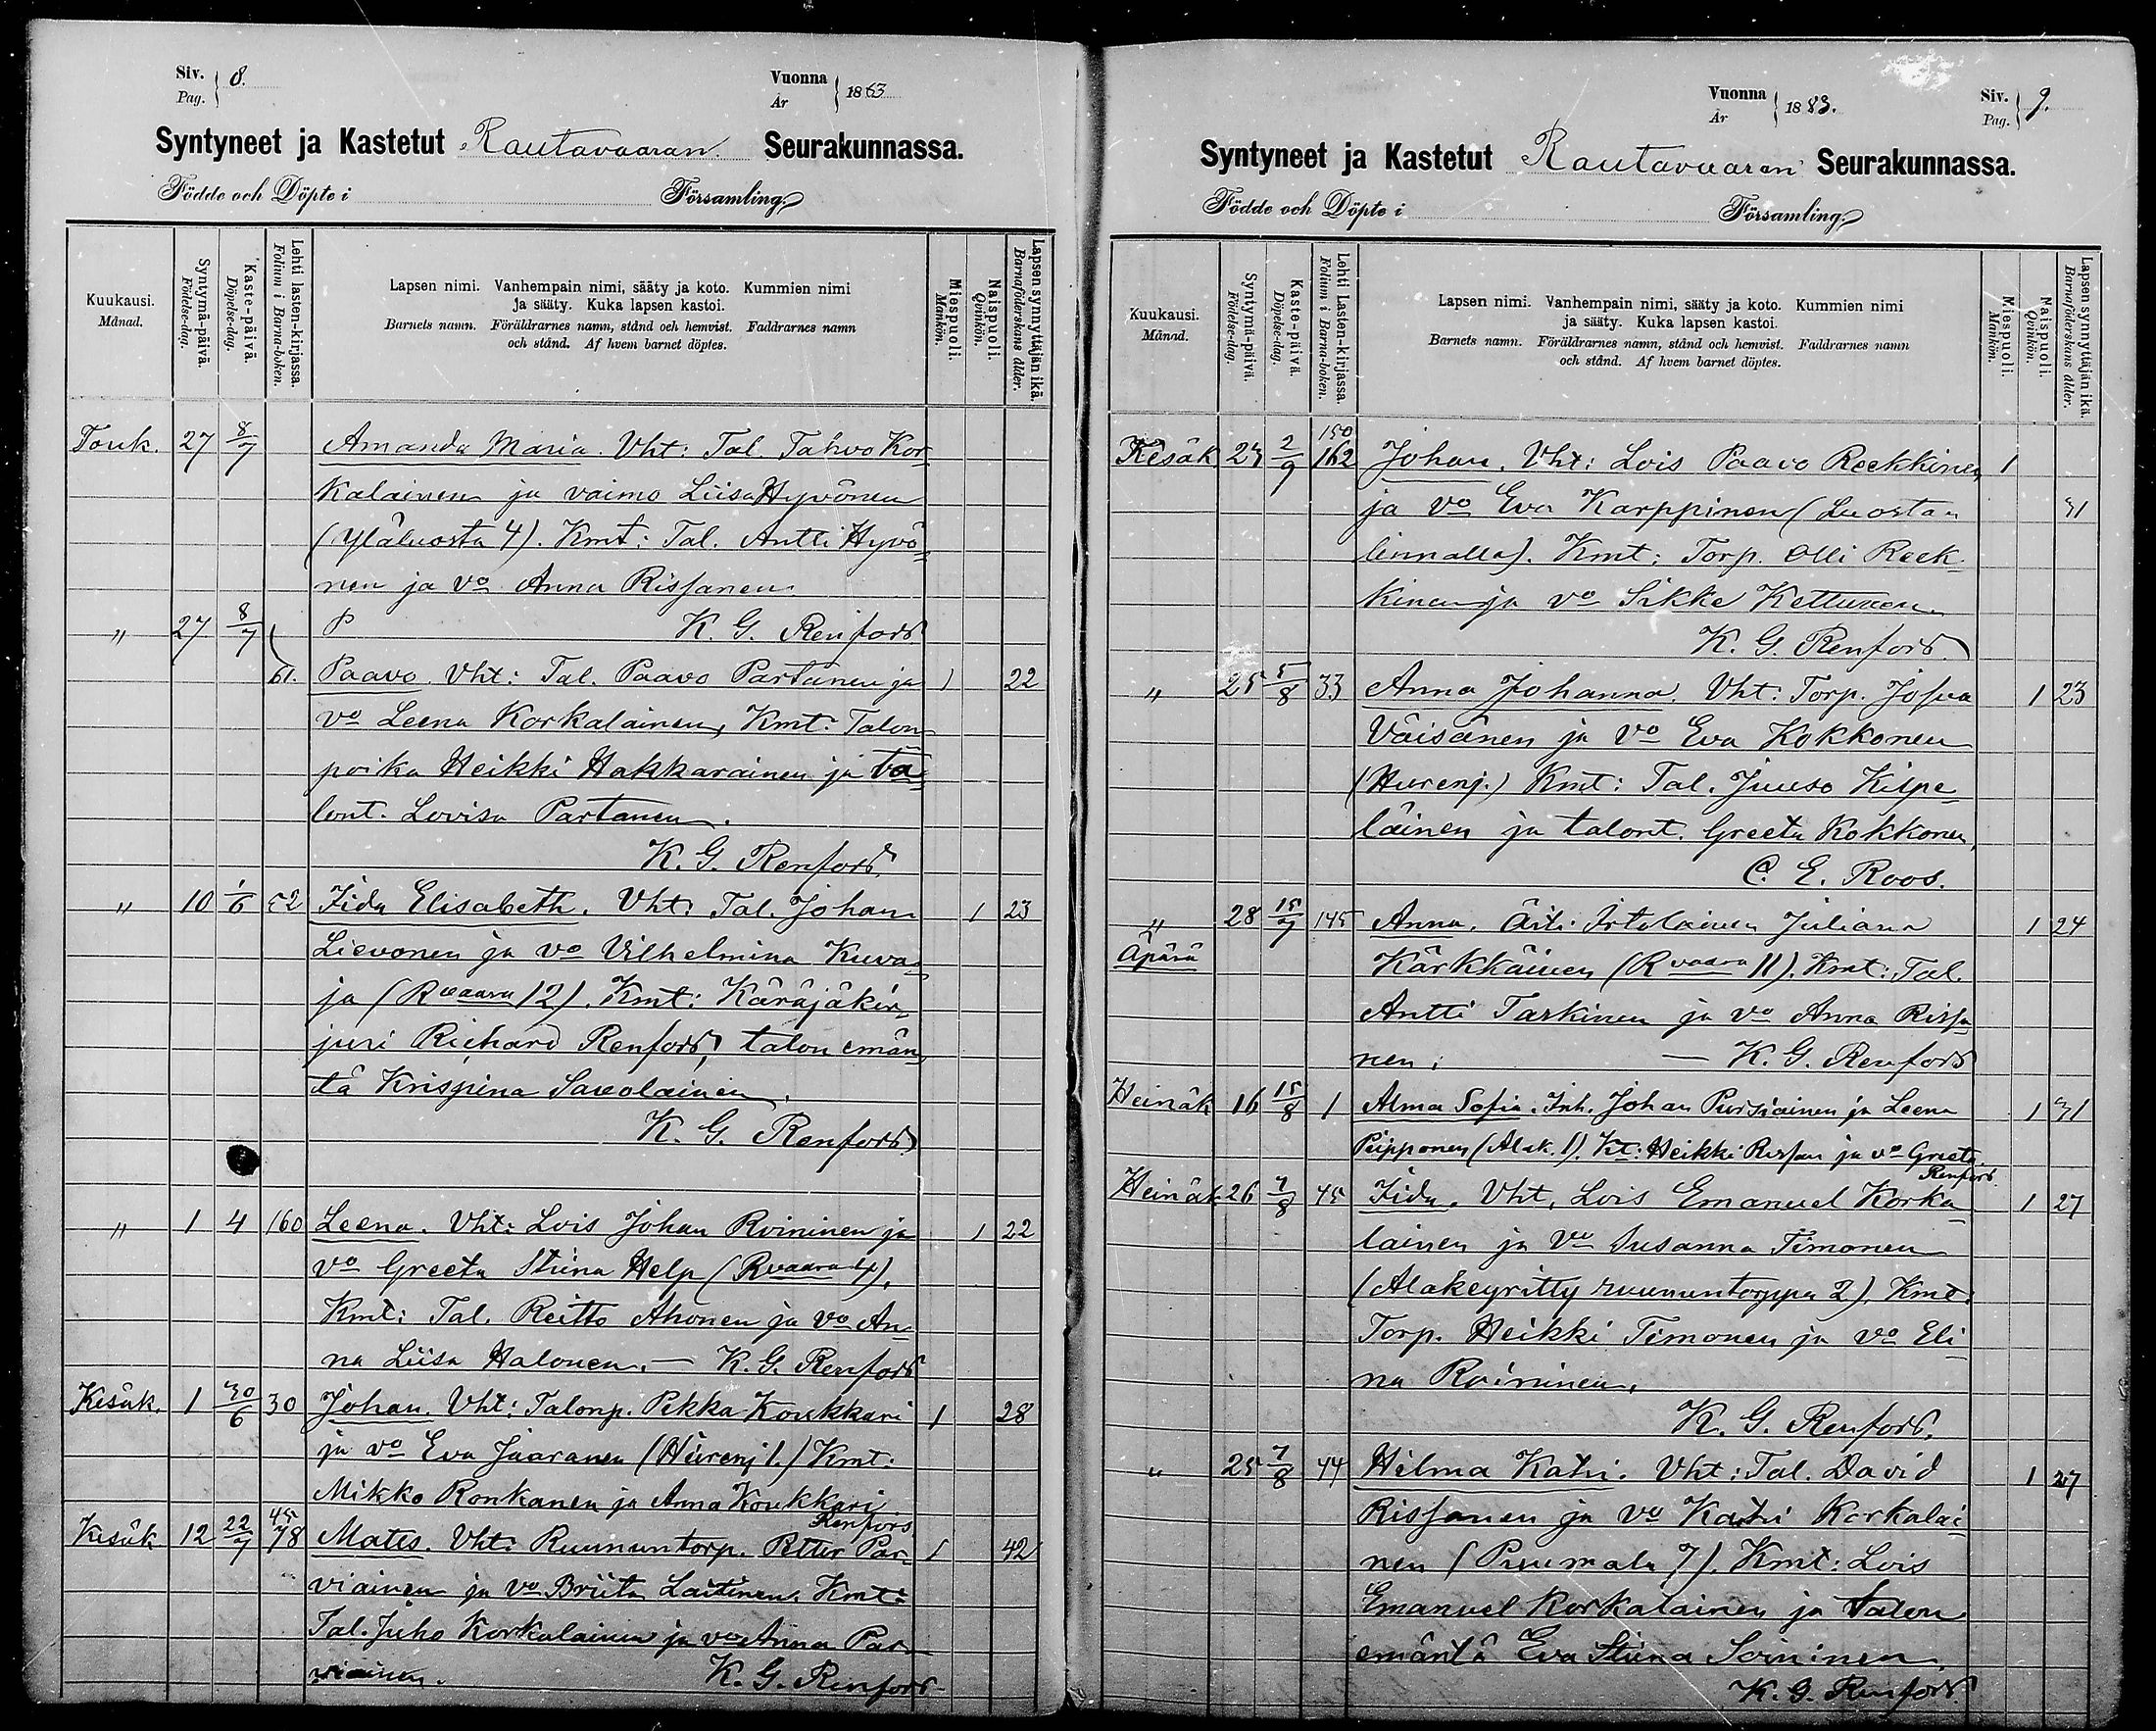 Siv. Pag. 8.
Vuonna År 1883
Syntyneet ja Kastetut Rautavaaran Seurakunnassa.
Födde och Döpte i Församling.
Kuukausi. Månad.
Syntymä-päivä. Födelse-dag.
Kaste-päivä. Döpelse-dag.
Lehti lasten-kirjassa. Folium i Barna-boken.
Lapsen nimi. Vanhempain nimi, sääty ja koto. Kummien nimi
ja sääty. Kuka lapsen kastoi.
Barnets namn. Föräldrarnes namn, stånd och hemvist. Faddrarnes namn
och stånd. Af hvem barnet döptes.
Miespuoli. Mankön.
Naispuoli. Qvinkön.
Lapsen synnyttäjän ikä. Barnaföderskans ålder.
Touk. 27 8/7 Amanda Maria. Vht: Tal. Tahvo Kor-
kalainen ja vaimo Liisa Hyvönen
(Yläluosta 4). Kmt: Tal. Antti Hyvö-
nen ja vo Anna Rissanen
" 27 8/7 P K. G. Renfors
61. Paavo. Vht: Tal. Paavo Partanen ja 1 22
vo Leena Korkalainen, Kmt: Talon-
poika Heikki Hakkarainen ja ta-
lont. Lovisa Partanen.
K. G. Renfors.
" 10 1/6 52 Iida Elisabeth. Vht: Tal. Johan 1 23
Lievonen ja vo Vilhelmina Kuva-
ja (Rvaara 12). Kmt: Käräjäkir-
juri Richard Renfors, talon emän-
tä Krispina Savolainen.
K. G. Renfors
" 1 4 160 Leena. Vht: Lois Johan Roininen ja 1 22
vo Greeta Stiina Help (Rvaara 4),
Kmt: Tal. Reitto Ahonen ja vo An-
na Liisa Halonen. — K. G. Renfors
Kesäk. 1 30/6 30 Johan. Vht: Talonp. Pekka Koukkari 1 28
ja vo Eva Jaaranen (Hiirenj 1.) Kmt:
Mikko Ronkanen ja Anna Koukkari
45 Renfors
Kesäk 12 22/7 78 Mates. Vht: Ruununtorp. Petter Par- 1 42
viainen ja vo Briita Laitinen. Kmt:
Tal. Juho Korkalainen ja vo Anna Par-
viainen. K. G. Renfors
Vuonna År 1883.
Siv. Pag. 9.
Syntyneet ja Kastetut Rautavaaran Seurakunnassa.
Födde och Döpte i Församling.
Kuukausi. Månad.
Syntymä-päivä. Födelse-dag.
Kaste-päivä. Döpelse-dag.
Lehti Lasten-kirjassa. Folium i Barna-boken.
Lapsen nimi. Vanhempain nimi, sääty ja koto. Kummien nimi
ja sääty. Kuka lapsen kastoi.
Barnets namn. Föräldrarnes namn, stånd och hemvist. Faddrarnes namn
och stånd. Af hvem barnet döptes.
Miespuoli. Mankön.
Naispuoli. Qvinkön.
Lapsen synnyttäjän ikä. Barnaföderskans ålder.
150
Kesäk 23 2/9 162 Johan. Vht: Lois Paavo Reekkinen 1
ja vo Eva Karppinen (Luostan 31
linnalla). Kmt: Torp. Olli Reek-
kinen ja vo Sikke Kettunen.
K. G. Renfors.
" 25 5/8 33 Anna Johanna. Vht: Torp. Josua 1 23
Väisänen ja vo Eva Kokkonen
(Hiirenj.) Kmt: Tal. Juuso Kilpe-
läinen ja talont. Greeta Kokkonen,
C. E. Roos.
" 28 15/7 145 Anna. Äiti: Irtolainen Juliana 1 24
Äpärä Kärkkäinen (Rvaara 11). Kmt: Tal.
Antti Taskinen ja vo Anna Rissa-
nen. — K. G. Renfors
Heinäk 16 15/8 1 Alma Sofia. Inh. Johan Pursiainen ja Leena 1 31
Piipponen (Alak. 1). Kt: Heikki Rissan ja vo Greeta
Renfors.
Heinäk 26 7/8 45 Iida. Vht. Lois Emanuel Korka- 1 27
lainen ja vo Susanna Timonen
(Alakeyritty ruununtorppa 2). Kmt.
Torp. Heikki Timonen ja vo Eli-
na Roininen.
K. G. Renfors.
" 25 7/8 44 Hilma Katri. Vht: Tal. David 1 27
Rissanen ja vo Katri Korkalai-
nen (Puumala 7). Kmt: Lois
Emanuel Korkalainen ja talon
emäntä Eva Stiina Soininen.
K. G. Renfors.